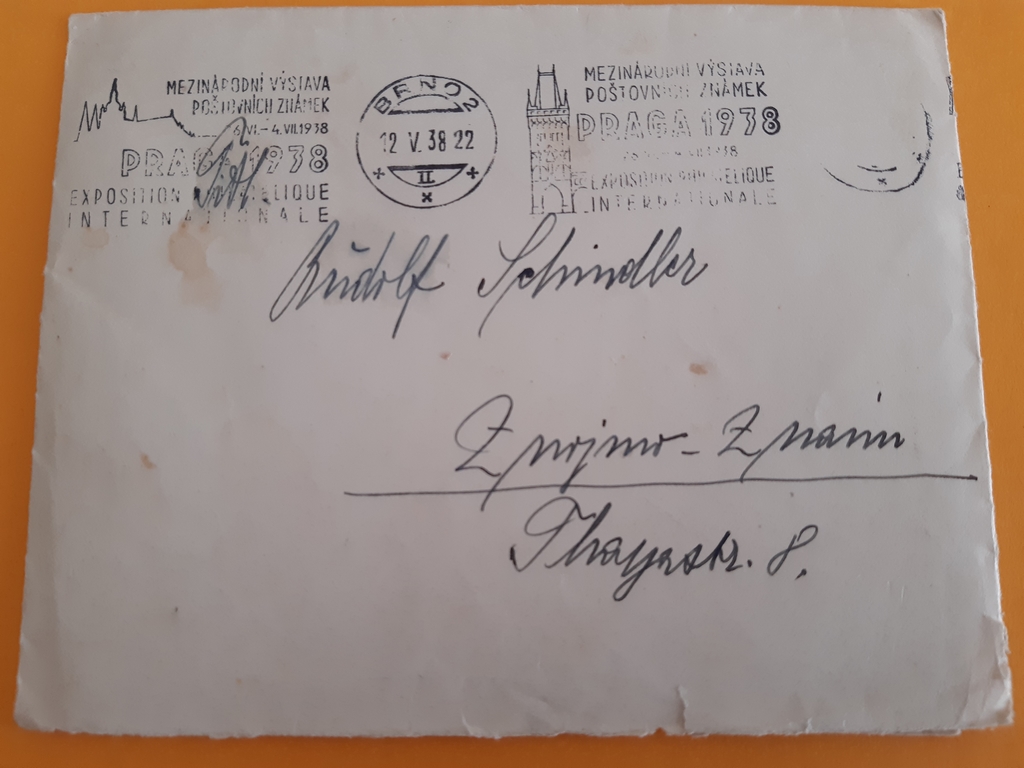 MEZINÁRODNÍ VÝSTAVA
POŠTOVNÍCH ZNÁMEK
VI.– 4.VII.1938
PRAGA 1938
EXPOSITION
INTERNATIONALE
BRNO 2
12 V. 38 22
II
MEZINÁRODNÍ VÝSTAVA
POŠTOVNÍCH ZNÁMEK
PRAGA 1938
EXPOSITION
INTERNATIONALE
Rudolf Schindler
Znojmo - Znaim
Thayastr. 8.